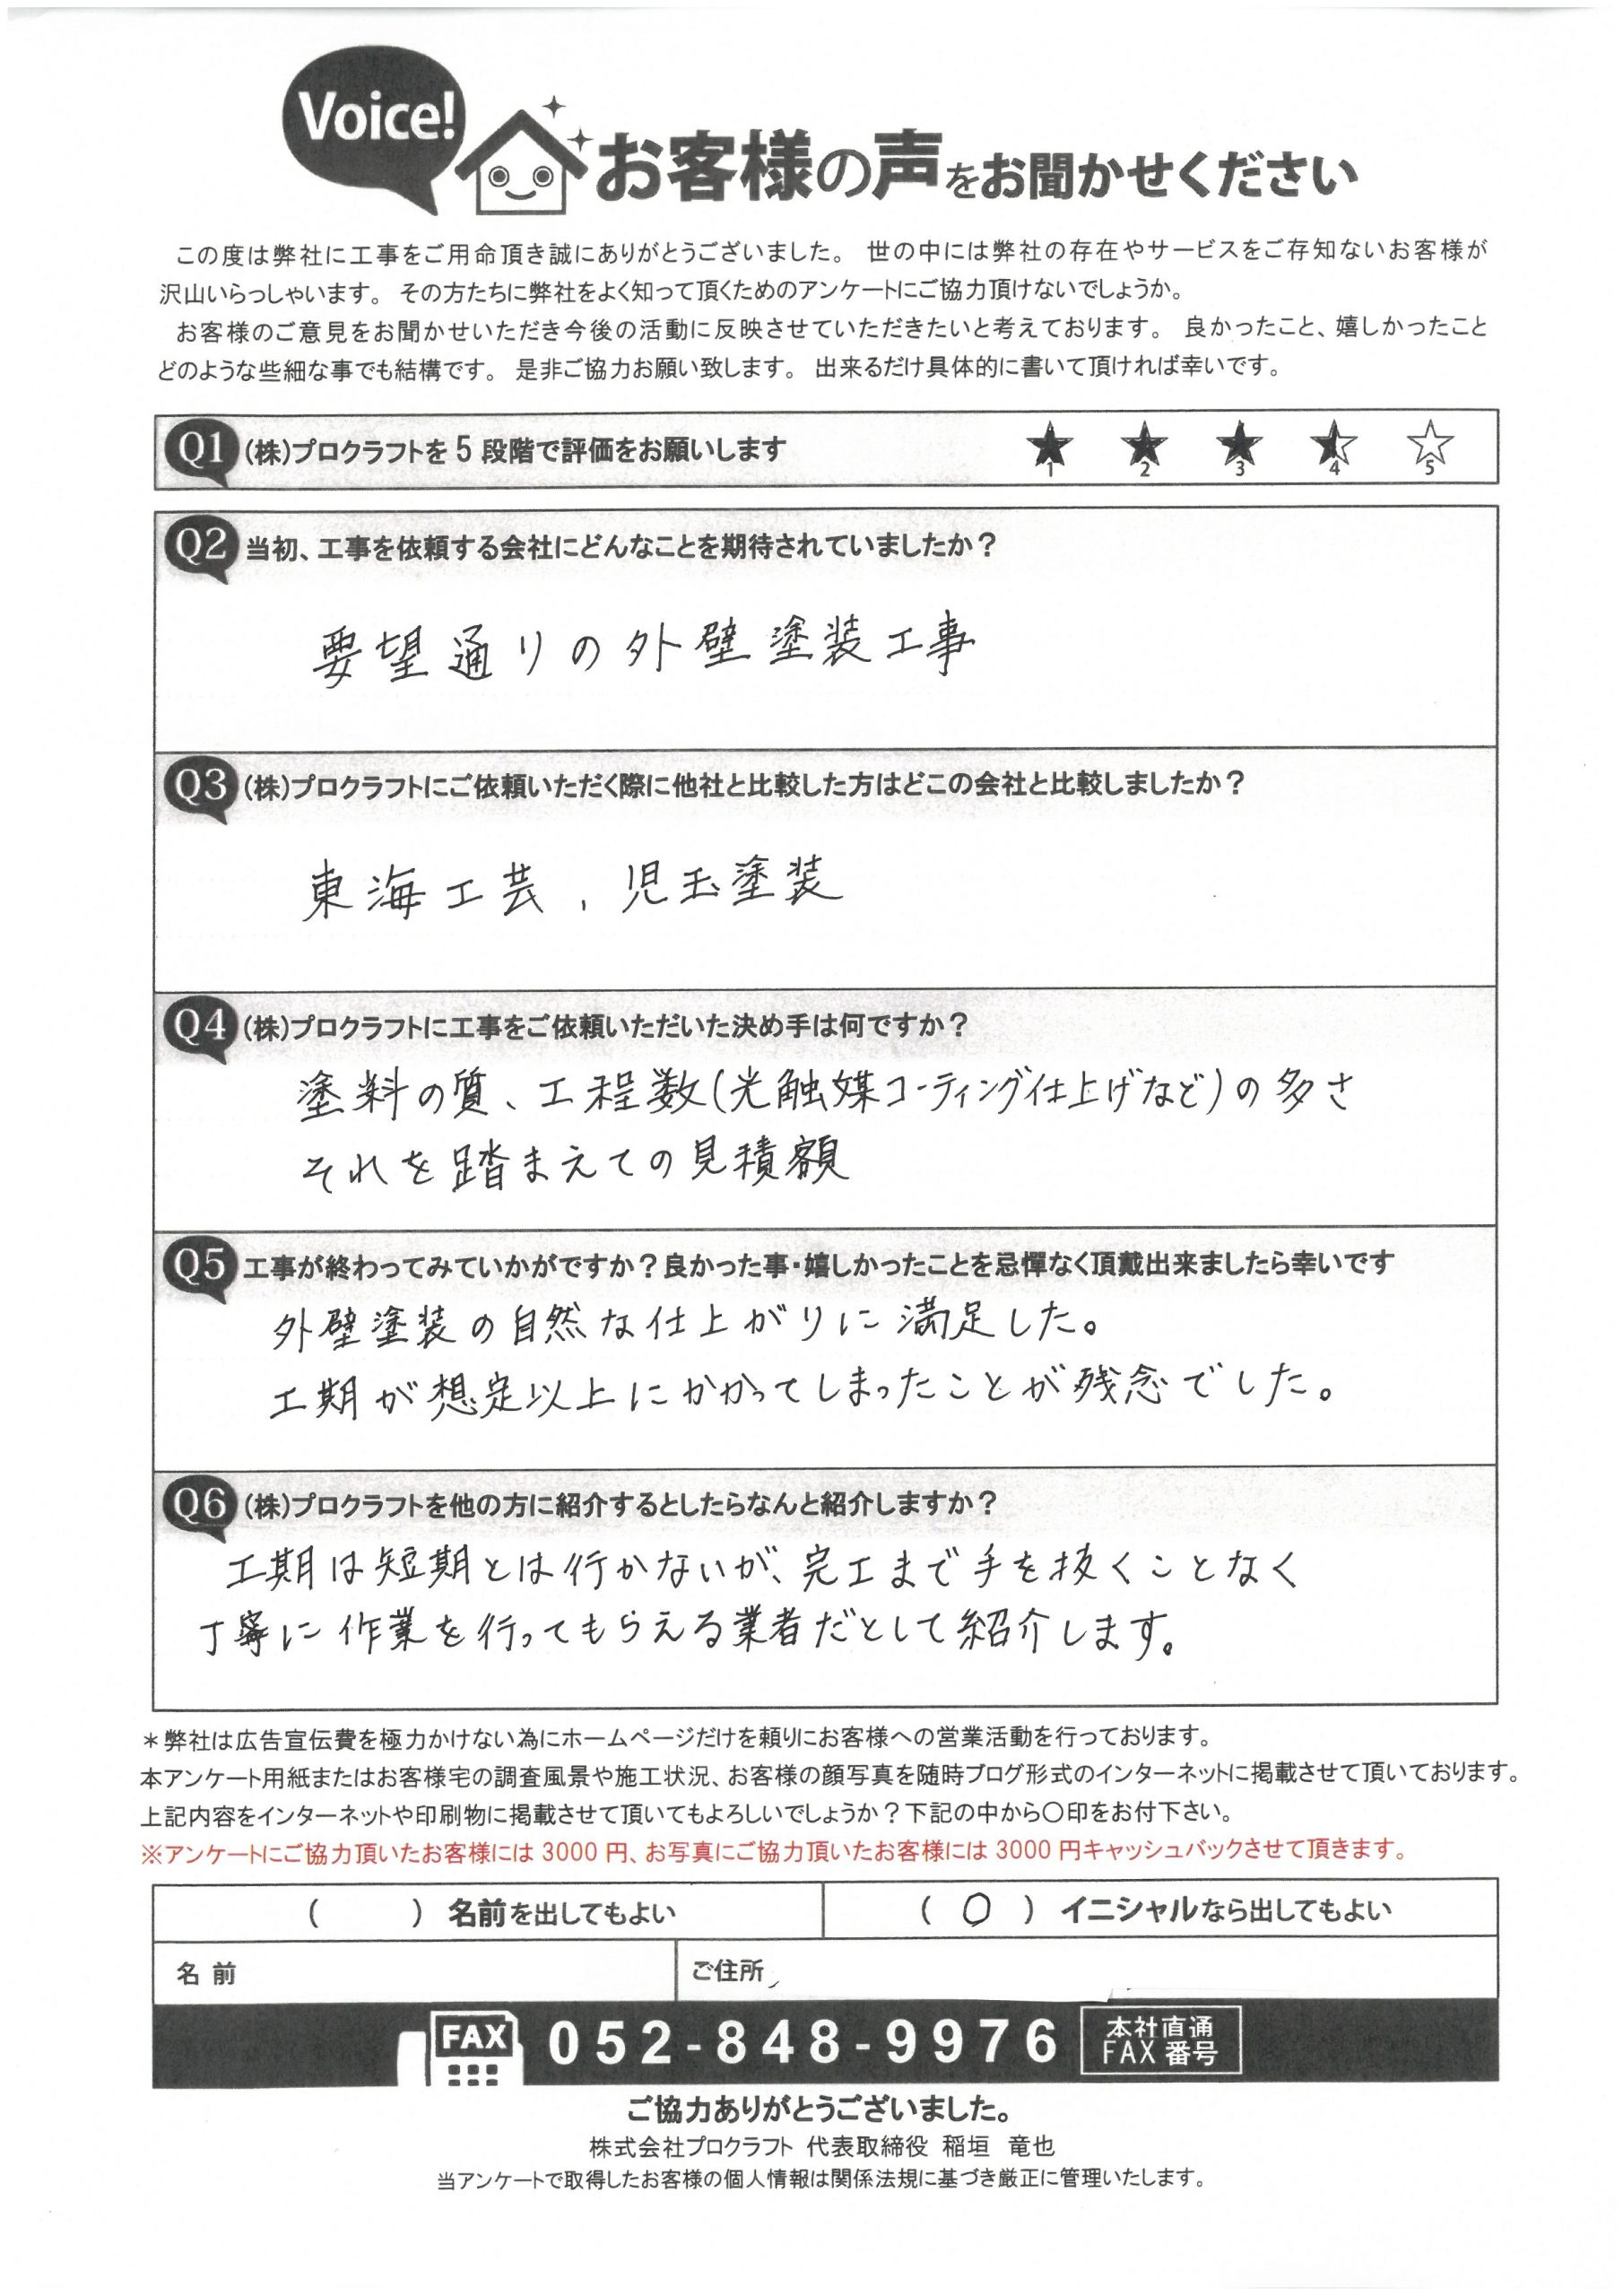 Voice!
お客様の声をお聞かせください
この度は弊社に工事をご用命頂き誠にありがとうございました。 世の中には弊社の存在やサービスをご存知ないお客様が
沢山いらっしゃいます。 その方たちに弊社をよく知って頂くためのアンケートにご協力頂けないでしょうか。
お客様のご意見をお聞かせいただき今後の活動に反映させていただきたいと考えております。 良かったこと、嬉しかったこと
どのような些細な事でも結構です。 是非ご協力お願い致します。 出来るだけ具体的に書いて頂ければ幸いです。
Q1 (株)プロクラフトを5段階で評価をお願いします ★ ★ ★ ★ ☆
1 2 3 4 5
Q2 当初、工事を依頼する会社にどんなことを期待されていましたか？
要望通りの外壁塗装工事
Q3 (株)プロクラフトにご依頼いただく際に他社と比較した方はどこの会社と比較しましたか？
東海工芸、児玉塗装
Q4 (株)プロクラフトに工事をご依頼いただいた決め手は何ですか？
塗料の質、工程数(光触媒コーティング仕上げなど)の多さ
それを踏まえての見積額
Q5 工事が終わってみていかがですか？良かった事・嬉しかったことを忌憚なく頂戴出来ましたら幸いです
外壁塗装の自然な仕上がりに満足した。
工期が想定以上にかかってしまったことが残念でした。
Q6 (株)プロクラフトを他の方に紹介するとしたらなんと紹介しますか？
工期は短期とは行かないが、完工まで手を抜くことなく
丁寧に作業を行ってもらえる業者だとして紹介します。
＊弊社は広告宣伝費を極力かけない為にホームページだけを頼りにお客様への営業活動を行っております。
本アンケート用紙またはお客様宅の調査風景や施工状況、お客様の顔写真を随時ブログ形式のインターネットに掲載させて頂いております。
上記内容をインターネットや印刷物に掲載させて頂いてもよろしいでしょうか？下記の中から〇印をお付下さい。
※アンケートにご協力頂いたお客様には3000円、お写真にご協力頂いたお客様には3000円キャッシュバックさせて頂きます。
(　　) 名前を出してもよい (〇) イニシャルなら出してもよい
名前 ご住所
FAX 052-848-9976 本社直通
FAX番号
ご協力ありがとうございました。
株式会社プロクラフト 代表取締役 稲垣 竜也
当アンケートで取得したお客様の個人情報は関係法規に基づき厳正に管理いたします。